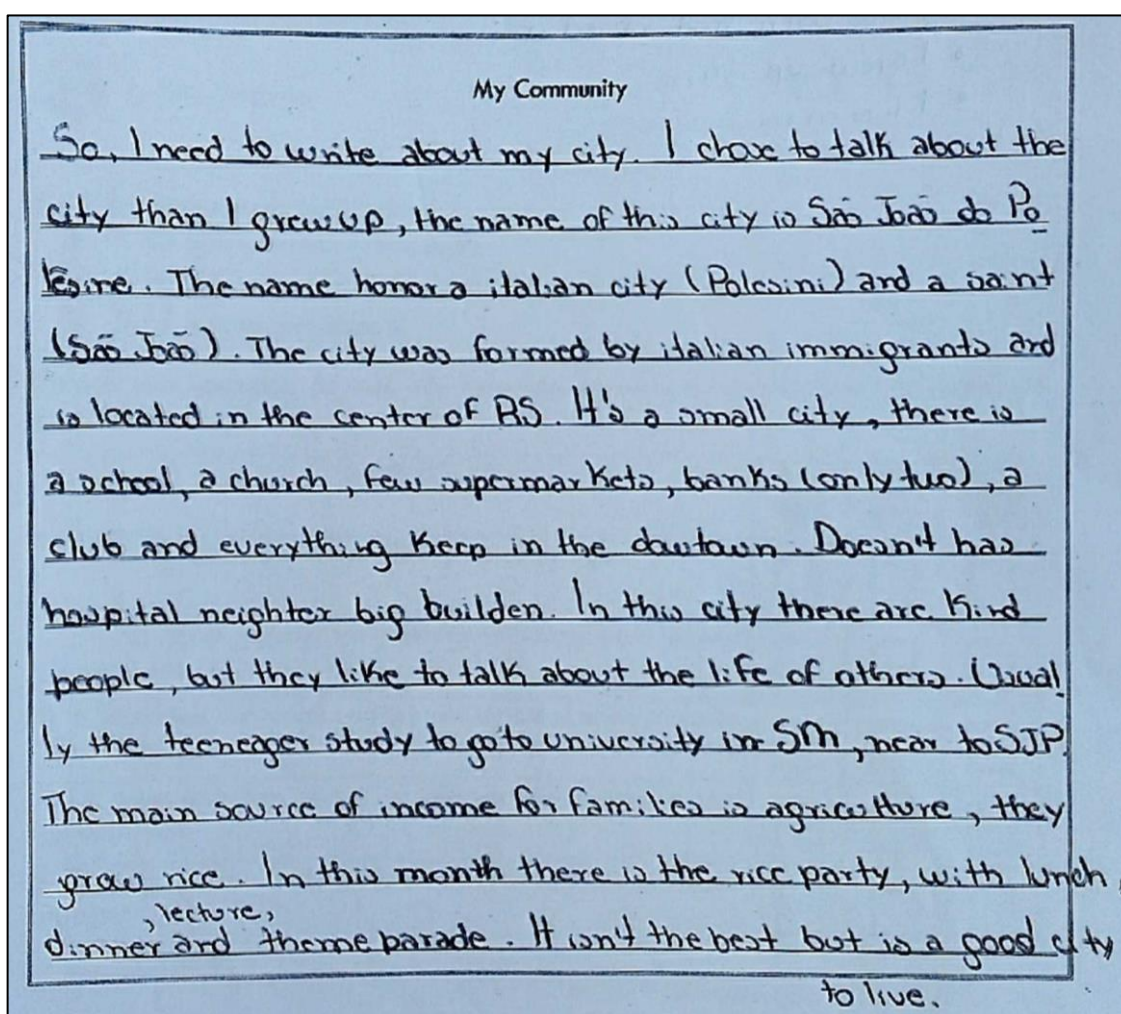 My Community
So, I need to write about my city. I chose to talk about the
city than I grew up, the name of this city is São João do Po
lêsine. The name honor a italian city (Polesini) and a saint
(São João). The city was formed by italian immigrants and
is located in the center of RS. It's a small city, there is
a school, a church, few supermarkets, banks (only two), a
club and everything keep in the dowtown. Doesn't has
hospital neighter big builden. In this city there are kind
people, but they like to talk about the life of others. Usual
ly the teeneager study to go to university in SM, near to SJP.
The main source of income for families is agriculture, they
grow rice. In this month there is the rice party, with lunch,
, lecture,
dinner and theme parade. It isn't the best but is a good city
to live.